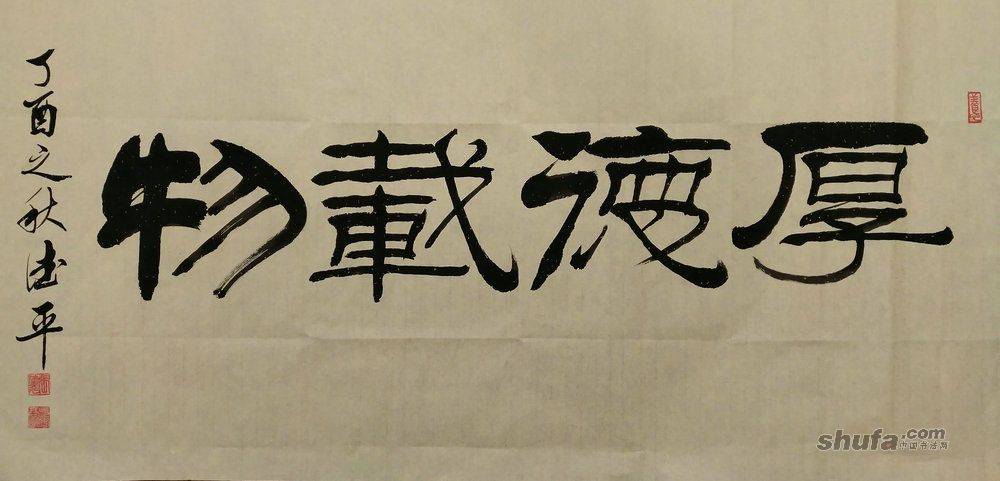 厚德載物
丁酉之秋 德平
shufa.com
中国书法网